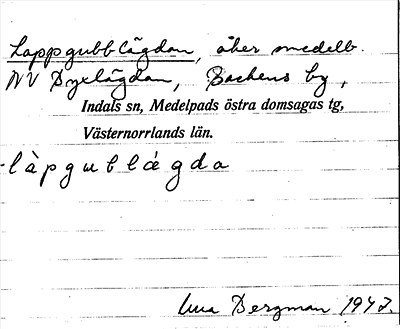 Lappgubblägdan, åker medelb.
NV Dyxlägdan, Backens by,
Indals sn, Medelpads östra domsagas tg,
Västernorrlands län.
-làpgublǽgda
Una Bergman 1947.